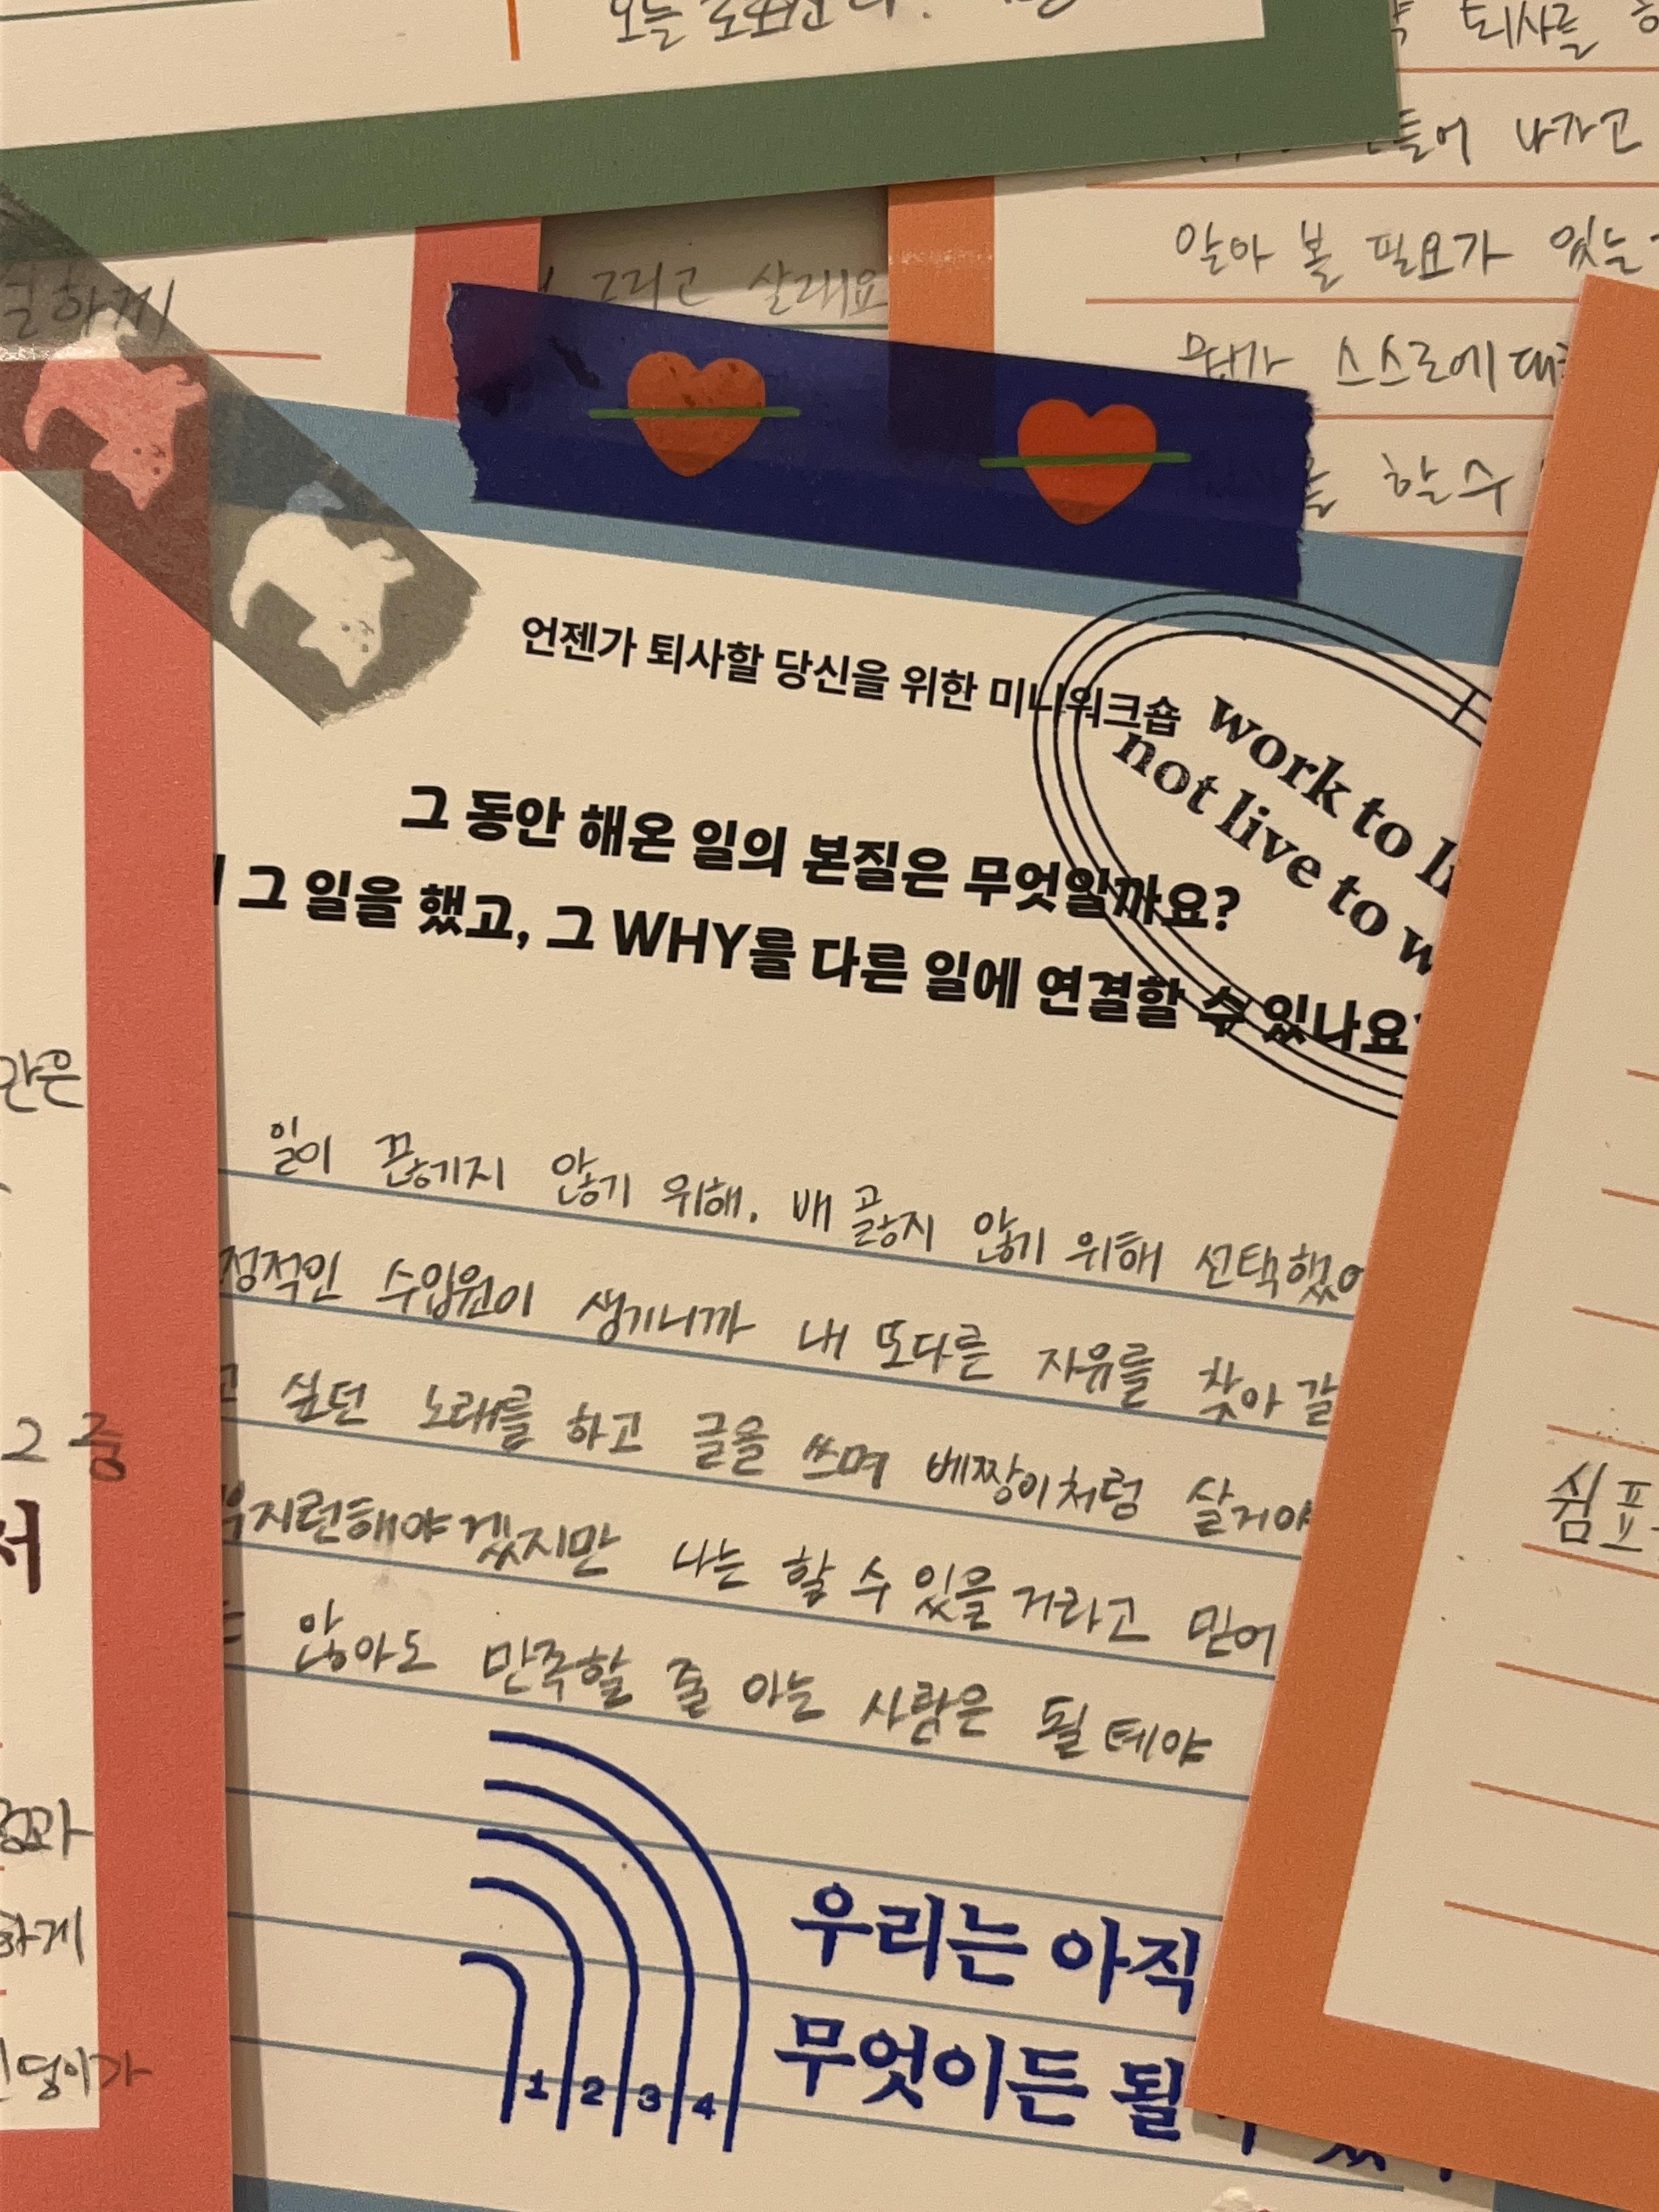 오늘
퇴사를
들어 나가고
알아 볼 필요가 있는
스스로에 대
할 수
하게
그리고 살래요
언젠가 퇴사할 당신을 위한 미니워크숍
work to
not live to
그 동안 해온 일의 본질은 무엇일까요?
그 일을 했고, 그 WHY를 다른 일에 연결할 수 있나요?
일이 끊기지 않기 위해. 배 곯지 않기 위해 선택했
정적인 수입원이 생기니까 내 또다른 자유를 찾아 갈
고 싶던 노래를 하고 글을 쓰며 베짱이처럼 살거야
지런해야겠지만 나는 할 수 있을 거라고 믿어
않아도 만족할 줄 아는 사람은 될 테야
1 2 3 4
우리는 아직
무엇이든 될
은
2 중
서
과
하게
덩이가
쉼표